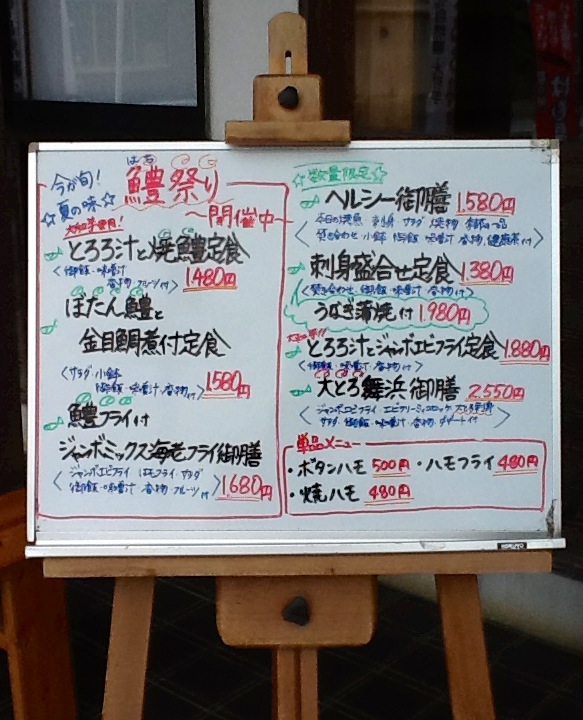 今が旬!
はも
☆夏の味☆
鱧祭り
～開催中～
とろろ汁と焼鱧定食
〈御飯・味噌汁
香物・フルーツ付〉
1,480円
ぼたん鱧と
金目鯛煮付定食
〈サラダ・小鉢
御飯・味噌汁・香物付〉
1580円
鱧フライ付
ジャンボミックス海老フライ御膳
〈ジャンボエビフライ・エビフライ・サラダ
御飯・味噌汁・香物・フルーツ付〉
1680円
☆数量限定☆
ヘルシー御膳 1,580円
〈本日の焼魚・刺身・サラダ・焼物
炊合わせ・小鉢・御飯・味噌汁・香物・健康茶付〉
刺身盛合せ定食 1,380円
〈炊き合わせ・小鉢・御飯・味噌汁・香物付〉
うなぎ蒲焼付 1,980円
とろろ汁とジャンボエビフライ定食 1,880円
〈御飯・味噌汁・香物付〉
大とろ舞浜御膳 2,550円
サラダ・御飯・味噌汁・香物・デザート付〉
単品メニュー
・ボタンハモ 500円 ・ハモフライ 480円
・焼ハモ 480円